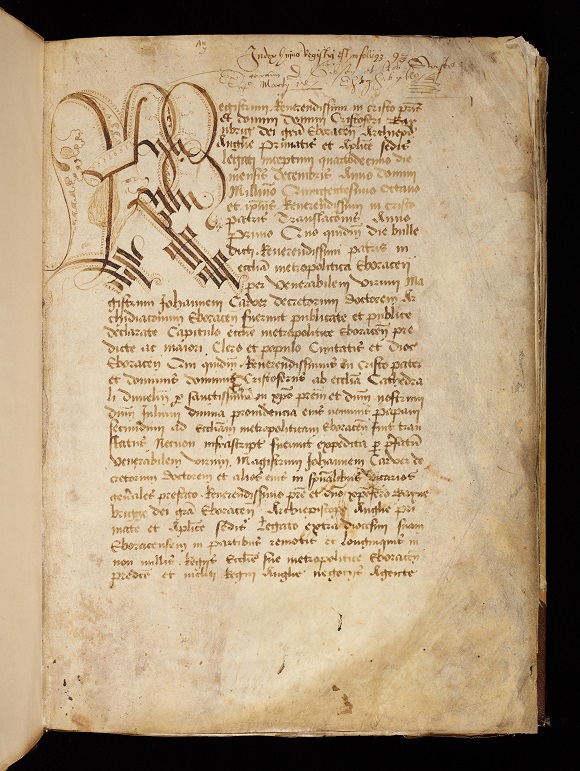 Index huius Registri est in folio 93
Registrum Reverendissimi in cristo pris
et domini domini Cristoferi Bay
nbrig dei gra Eboracen Archiepi
Anglie Primatis et Aplice sedis
legati inceptum quartodecimo die
mensis decembris Anno domini
Millimo Quingentesimo Octavo
et ipius Reverendissimi in cristo
patris Translaconis Anno
Primo Quo quidm die bulle
dicti Reverendissimi patris in
ecclia metropolitica Eboracen
per venerabilem virum Ma
gistrum Johannem Carver decretorum doctorem Ar
chidiaconum Eboracen fuerunt publicate et publice
declarate Capitulo ecclie metropolitice Eboracen pre
dicte ac maiori Clero et populo Civitatis et dioc
Eboracen Qui quidm Reverendissimus in Cristo pater
et dominus dominus Cristoferus ab ecclia Cathedra
li dunelm per sanctissimum in xpo prem et dnm nostrum
dnm Julium divina providencia eius nominis papam
secundum ad eccliam metropoliticam Eboracen fuit tran
slatus Necnon infrascript fuerunt expedita per prefatum
venerabilem virum Magistrum Johannem Carver de
cretorum doctorem et alios eius in spualibus vicarios
generales prefato Reverendissimo pre et dno xpofero Bayne
brigge dei gra Eboracen Archiepiscopo Anglie pri
mate et Aplice sedis Legato extra diocesim suam
Eboracensem in partibus remotis et longinquis in
non nullis Regiis Ecclie sue metropolitice Eboracen
predicte et incliti Regni Anglie negociis Agente